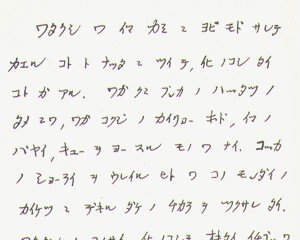 ワタクシ ワ イマ カミ ニ ヨビ モドサレテ
カエル コト ト ナッタ ニ ツイテ, イヒノコシ タイ
コト ガ アル. ワガ クニ ブンカ ノ ハッタツ ノ
タメ ニワ, ワガ コクジ ノ カイリョー ホド, イマ ノ
バヤイ, キュー ヲ ヨースル モノ ワ ナイ. コッカ
ノ ショーライ ヲ ウレイル ヒト ワ コノ モンダイ ノ
カイケツ ニ デキル ダケ ノ チカラ ヲ ツクサレ タイ.